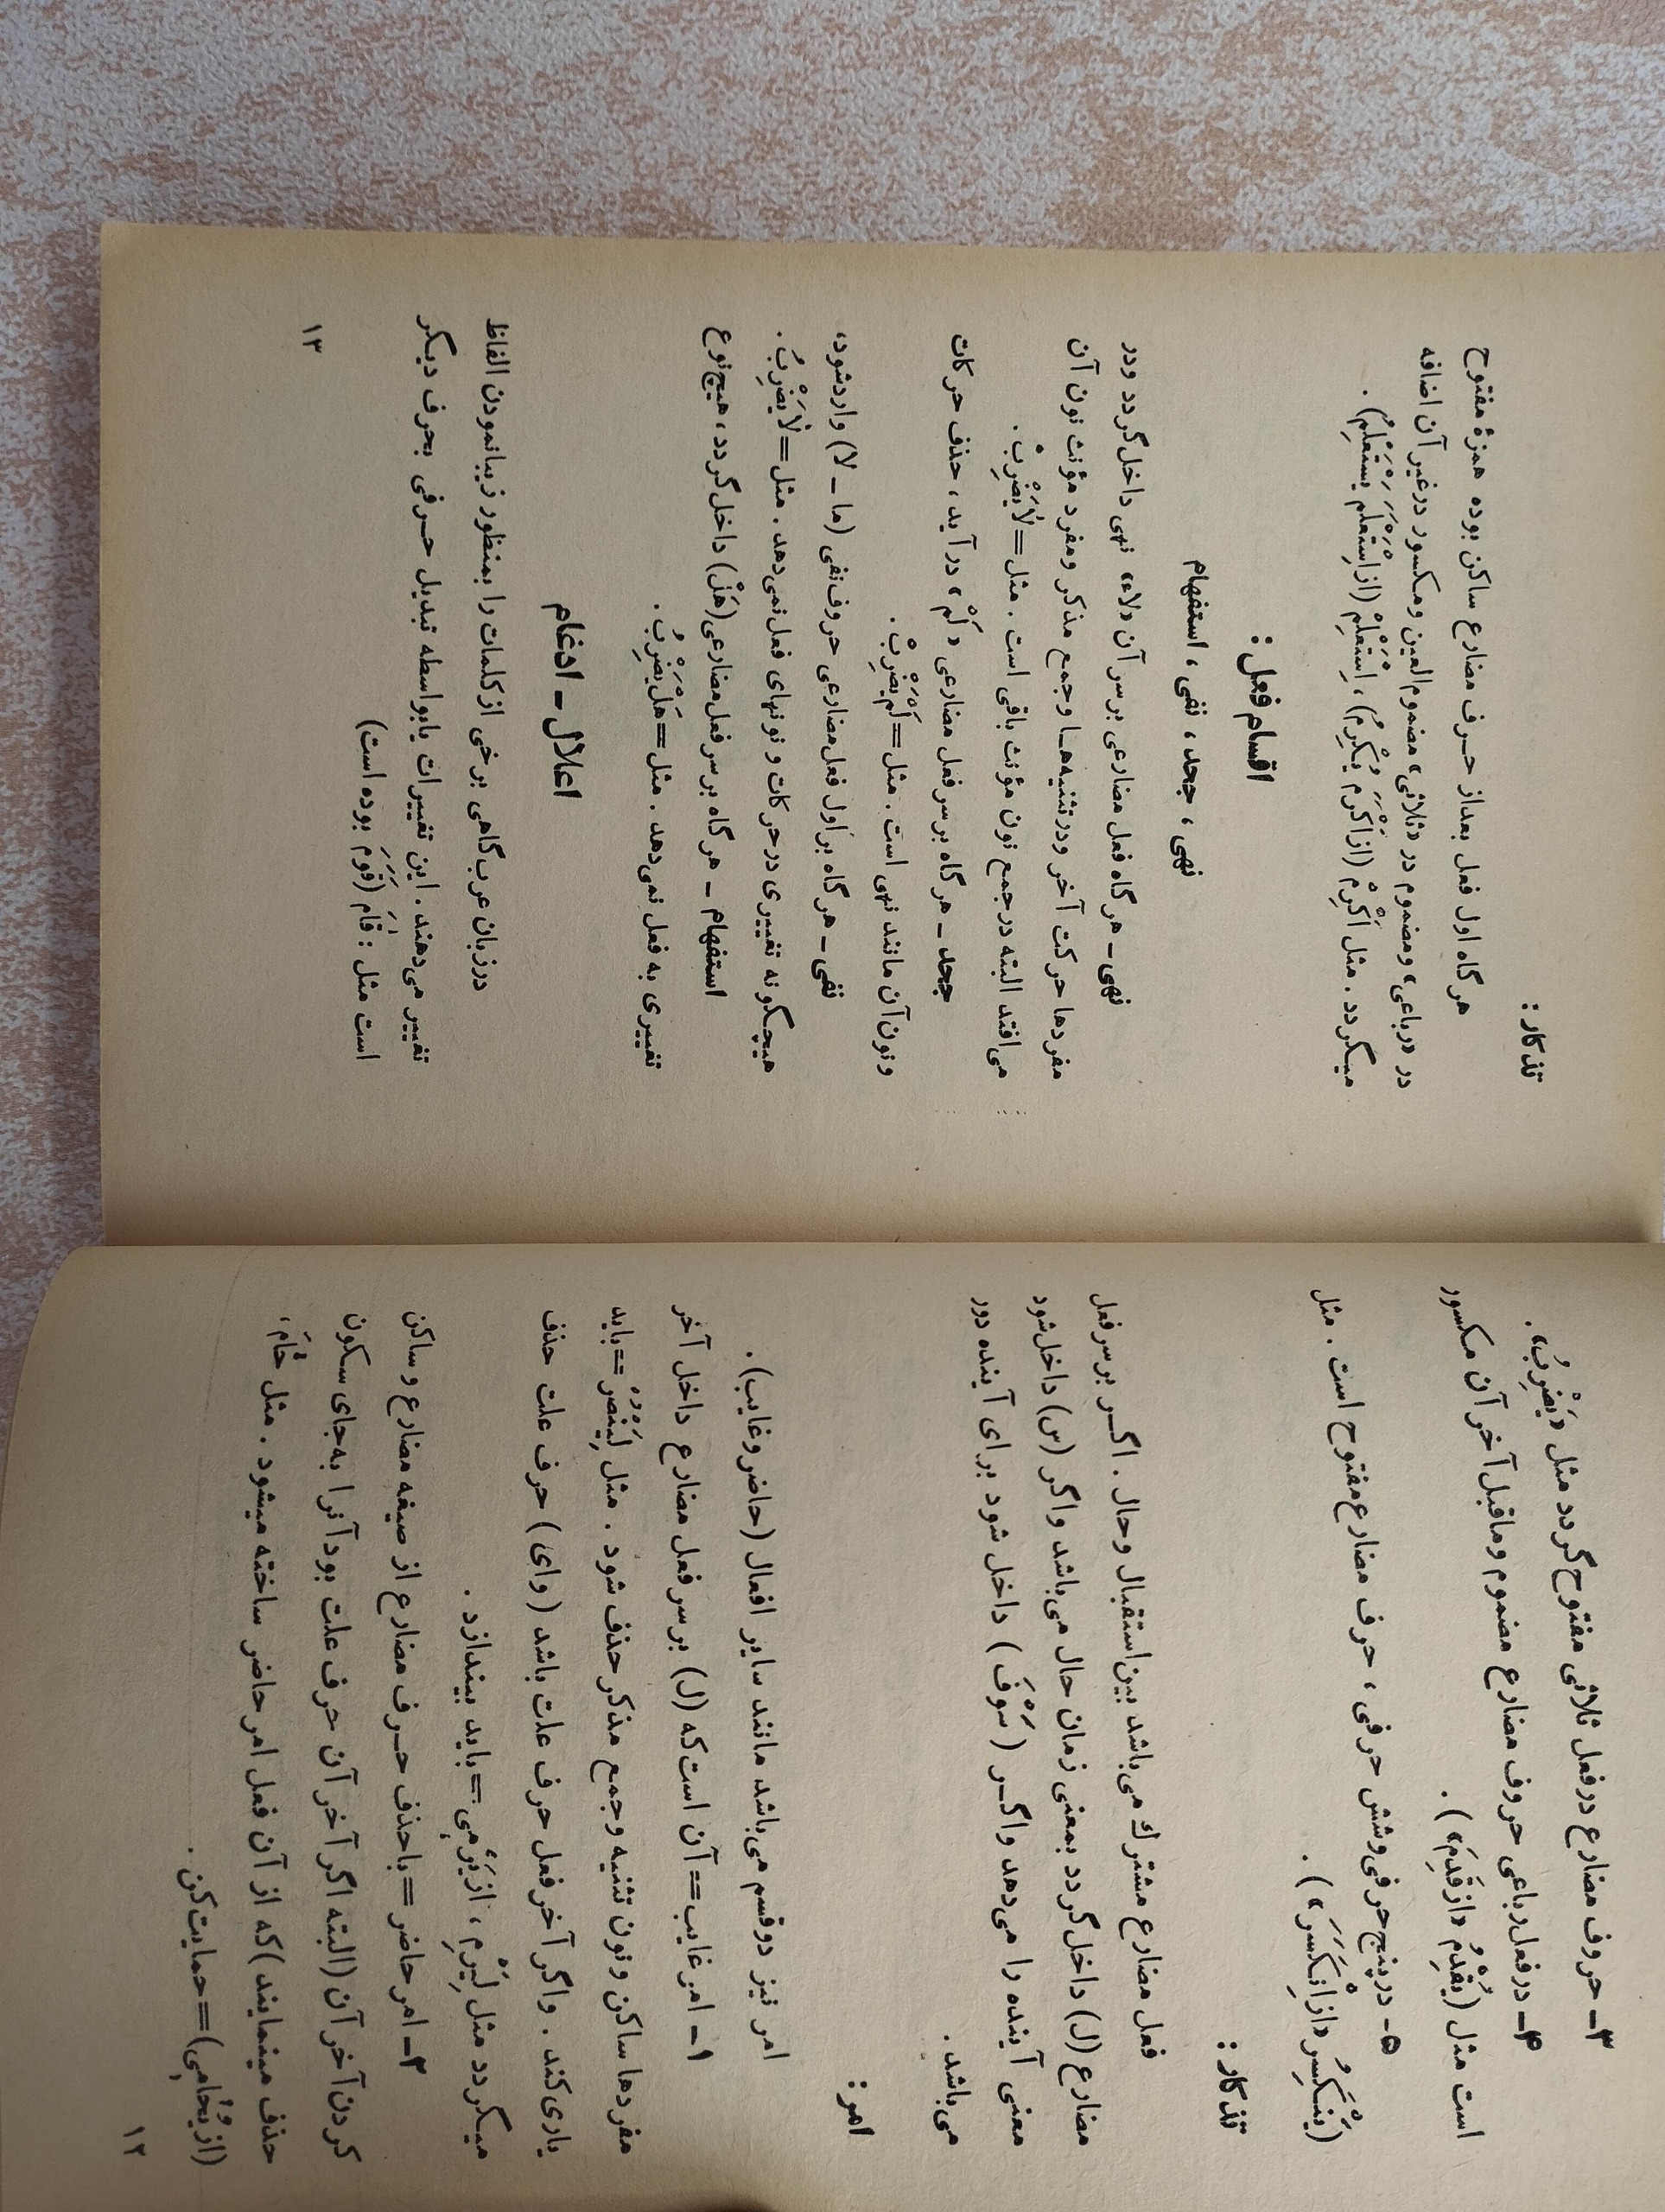 ۳ـ حروف مضارع درفعل ثلاثی مفتوح گردد مثل «یَضْرِبُ».
۴ـ درفعل رباعی حروف مضارع مضموم وماقبل آخر آن مکسور
است مثل (یُقْدِمُ «از قَدِمَ») .
۵- درپنج حرفی وشش حرفی ، حرف مضارع مفتوح است . مثل
(یَنْکَسِرُ «از اِنْکَسَرَ») .
تذکار :
فعل مضارع مشترك می‌باشد بین استقبال وحال . اگـر برسر فعل
مضارع (ل) داخل گردد بمعنی زمان حال می‌باشد واگر (س) داخل شود
معنی آینده را می‌دهد واگـر (سَوْفَ) داخل شود برای آینده دور
می‌باشد .
امر :
امر نیز دوقسم می‌باشد مانند سایر افعال (حاضر وغایب) .
۱- امر غایب= آن است که (ل) برسر فعل مضارع داخل آخر
مفردها ساکن و نون تثنیه وجمع مذکر حذف شود . مثل لِیَنْصُرْ=باید
یاری کند . واگر آخر فعل حرف علت باشد (وای) حرف علت حذف
میگردد مثل لِیَرْمِ ، از یَرْمِی= باید بیندازد .
۲ـ امر حاضر= باحذف حـرف مضارع از صیغه مضارع و ساکن
کردن آخر آن (البته اگر آخر آن حرف علت بود آنرا به جای سکون
حذف مینمایند) که از آن فعل امر حاضر ساخته میشود . مثل حٰامِ ،
(از یُحٰامِی)=حمایت کن .
۱۲
تذکار :
هرگاه اول فعل بعداز حـرف مضارع ساکن بوده همزۀ مفتوح
در «رباعی» ومضموم در «ثلاثی» مضموم‌العین ومکسور درغیر آن اضافه
میگردد . مثل اَکْرِمْ (از اَکْرَمَ یُکْرِمُ) ، اِسْتَعْلِمْ (از اِسْتَعْلَمَ یَسْتَعْلِمُ) .
اقسام فعل :
نهی ، جحد ، نفی ، استفهام
نهی ـ هرگاه فعل مضارعی برسر آن «لاء» نهی داخل گردد ودر
مفردها حرکت آخر ودر تثنیه‌هـا وجمع مذکر ومفرد مؤنث نون آن
می‌افتد البته درجمع نون مؤنث باقی است . مثل=لٰایَضْرِبْ .
جحد ـ هرگاه برسر فعل مضارعی «لَمْ» در آید ، حذف حرکات
ونون آن مانند نهی است . مثل=لَمْ‌یَضْرِبْ .
نفی ـ هرگاه براول فعل مضارعی حروف نفی (ما ـ لا) واردشود،
هیچگونه تغییری درحرکات و نونهای فعل نمی‌دهد . مثل=لٰایَضْرِبُ .
استفهام ـ هرگاه برسر فعل مضارعی(هَلْ) داخل گردد ، هیچ نوع
تغییری به فعل نمی‌دهد . مثل=هَلْ‌یَضْرِبُ .
اعلال ـ ادغام
درزبان عرب گاهی برخی از کلمات را بمنظور زیبانمودن الفاظ
تغییر می‌دهند . این تغییرات یابواسطه تبدیل حـرفی بحرف دیـگر
است مثل : قٰامَ (قَوَمَ بوده است)
۱۳